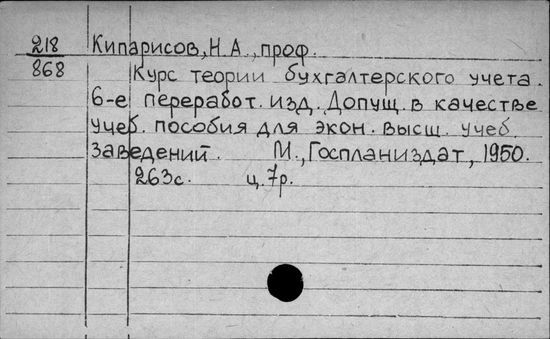 218 Кипарисов, Н.А., проф.
868 Курс теории бухгалтерского учета.
6-е переработ. изд. Допущ. в качестве
учеб. пособия для экон. высш. учеб.
заведений. М., Госпланиздат, 1950.
263с. ц. 7р.